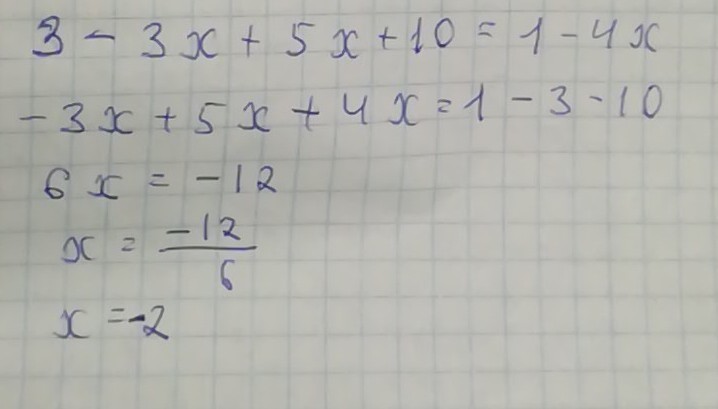 3 - 3x + 5x + 10 = 1 - 4x
- 3x + 5x + 4x = 1 - 3 - 10
6x = -12
x = \frac{-12}{6}
x = -2